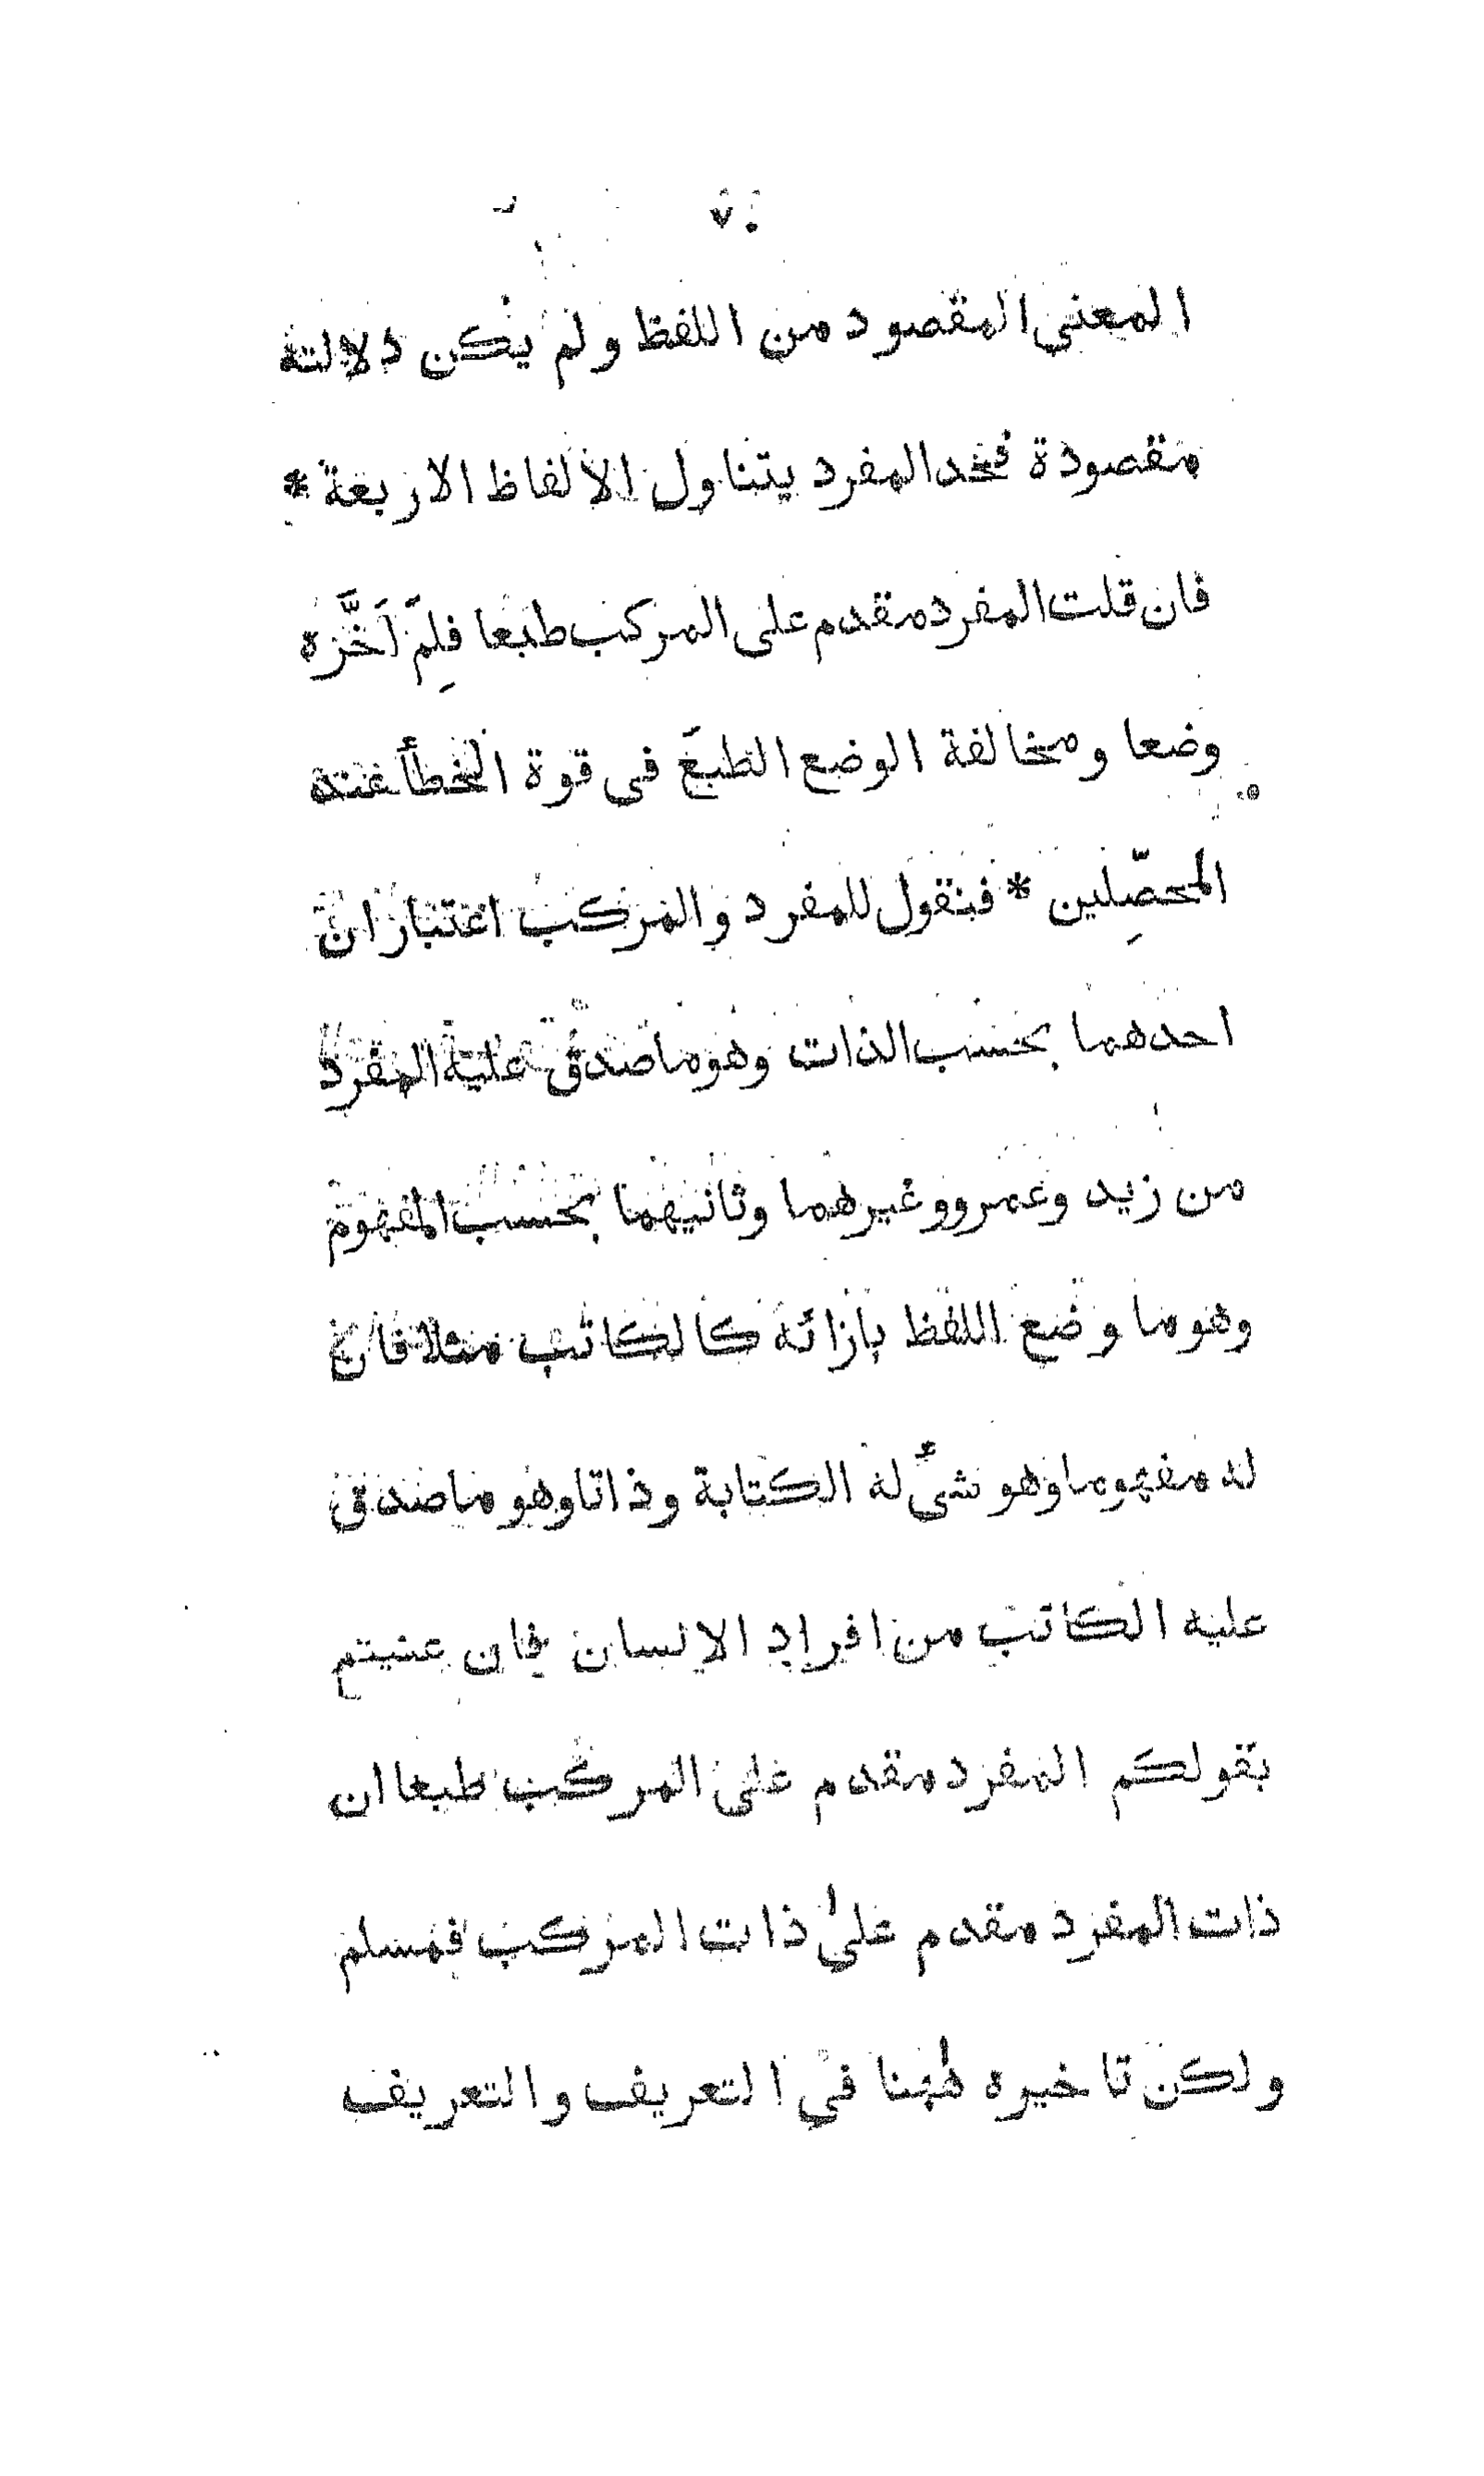 ٧٠
المعنى المقصود من اللفظ ولم يكن دلالته
مقصودة فحد المفرد يتناول الالفاظ الاربعة *
فان قلت المفرد مقدم على المركب طبعا فلِمَ اَخَّرَه
وضعا ومخالفة الوضع الطبع فى قوة الخطأ عند
المحصِّلين * فنقول للمفرد والمركب اعتباران
احدهما بحسب الذات وهو ما صدق عليه المفرد
من زيد وعمرو وغيرهما وثانيهما بحسب المفهوم
وهو ما وضع اللفظ بازائه كالكاتب مثلا فان
له مفهوما وهو شئ له الكتابة وذاتا وهو ما صدق
عليه الكاتب من افراد الانسان فان عنيتم
بقولكم المفرد مقدم على المركب طبعا ان
ذات المفرد مقدم على ذات المركب فمسلم
ولكن تاخيره ههنا في التعريف والتعريف